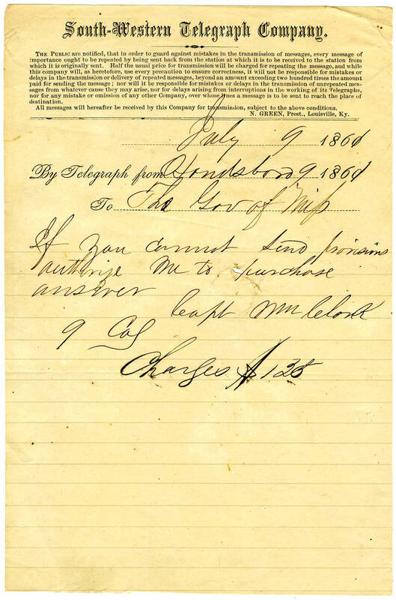 South-Western Telegraph Company.
THE PUBLIC are notified, that in order to guard against mistakes in the transmission of messages, every message of
importance ought to be repeated by being sent back from the station at which it is to be received to the station from
which it is originally sent. Half the usual price for transmission will be charged for repeating the message, and while
this company will, as heretofore, use every precaution to ensure correctness, it will not be responsible for mistakes or
delays in the transmission or delivery of repeated messages, beyond an amount exceeding two hundred times the amount
paid for sending the message; nor will it be responsible for mistakes or delays in the transmission of unrepeated mes-
sages from whatever cause they may arise, nor for delays arising from interruptions in the working of its Telegraphs,
nor for any mistake or omission of any other Company, over whose lines a message is to be sent to reach the place of
destination.
All messages will hereafter be received by this Company for transmission, subject to the above conditions.
N. GREEN, Prest., Louisville, Ky.
July 9 1861
By Telegraph from Handsboro 9 1861
To The Gov of Miss
If you cannot send provisions
authorize me to purchase
answer
Capt Wm Clark
9 Col
Charges $1 25